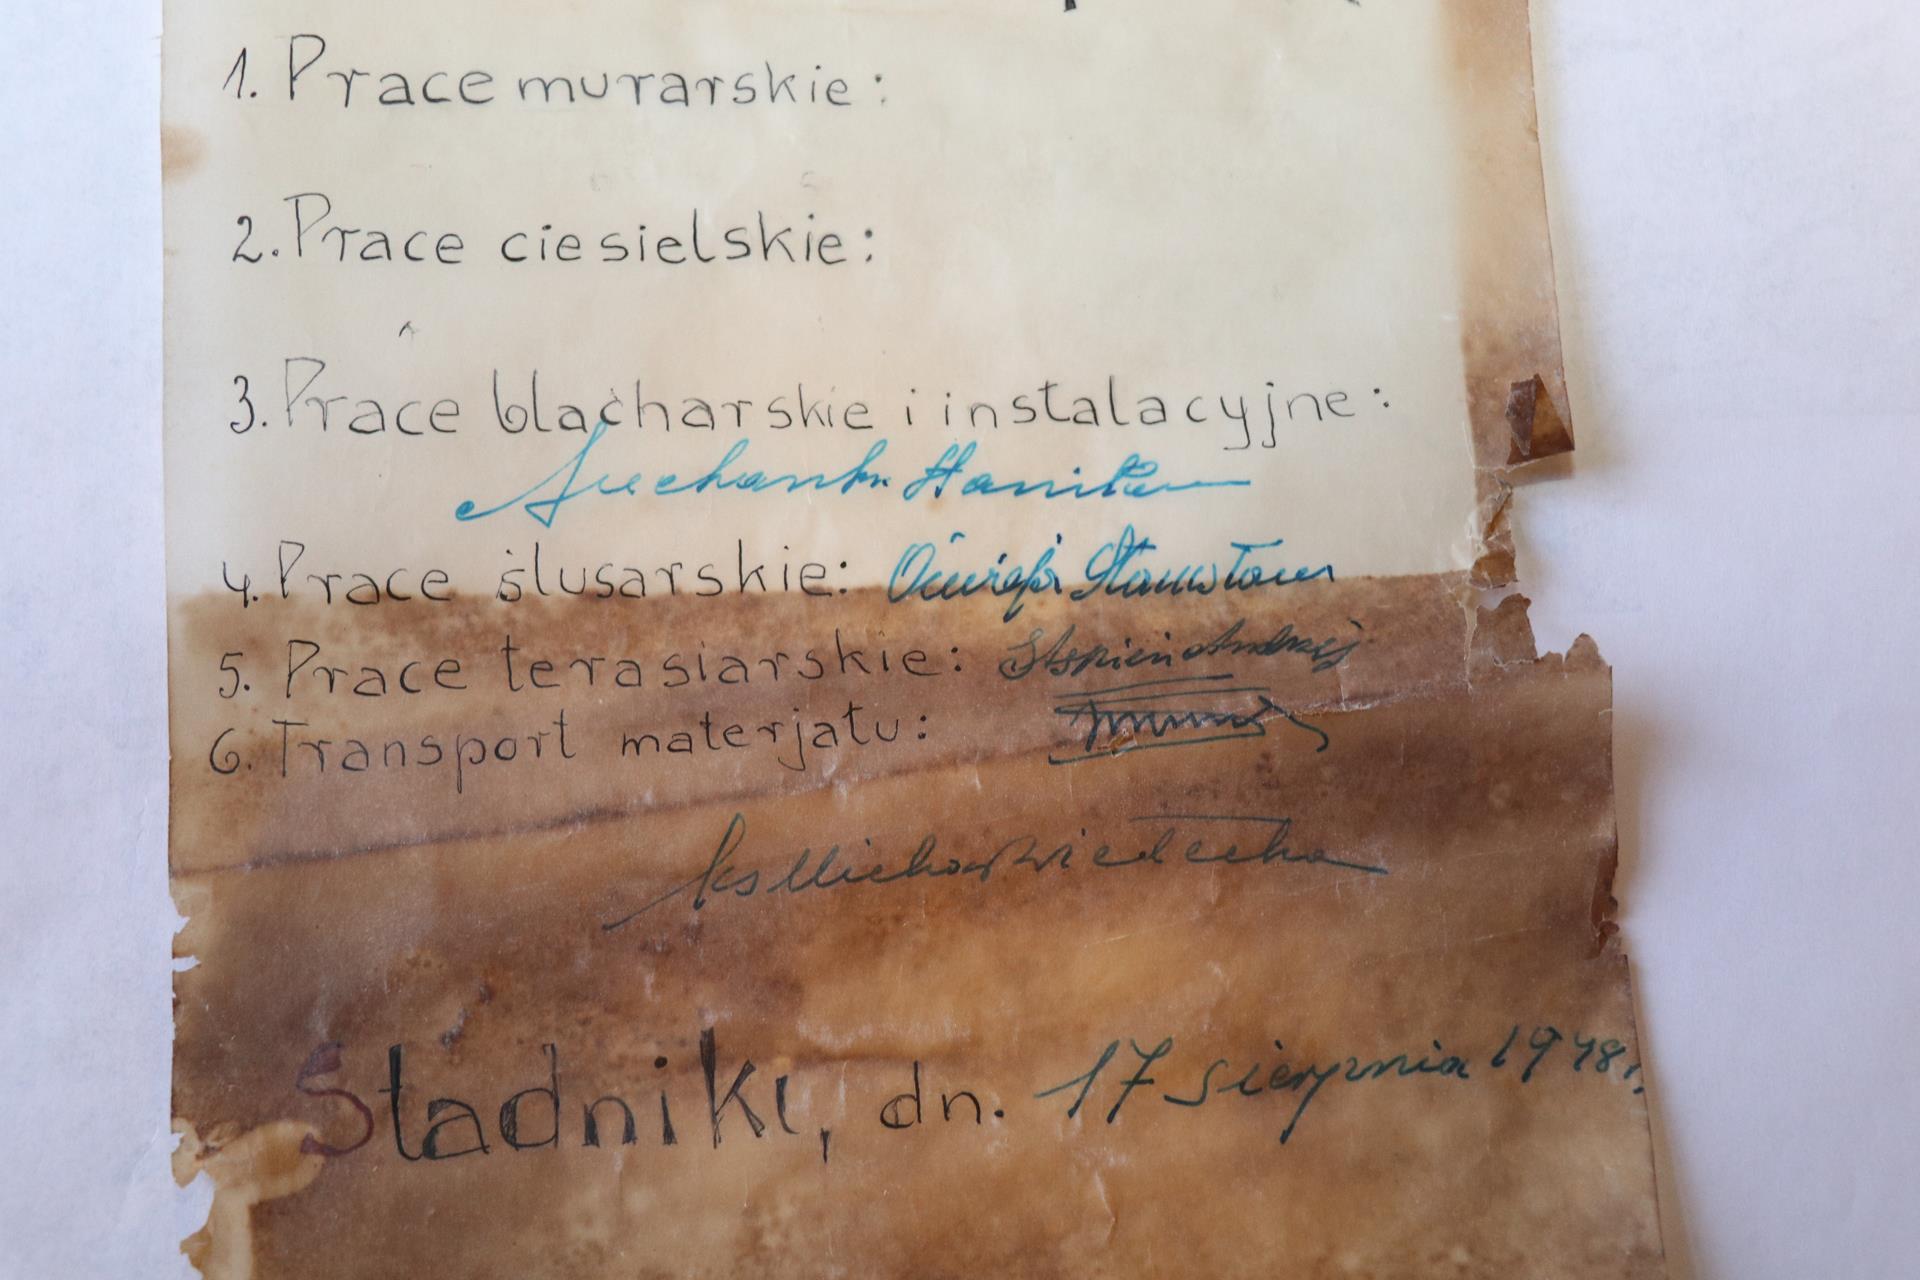 1. Prace murarskie:
2. Prace ciesielskie:
3. Prace blacharskie i instalacyjne:
4. Prace ślusarskie: Stanisław
5. Prace terasiarskie: Stspień Andrzej
6. Transport materjału:
ks Michał
Stadniki, dn. 17 sierpnia 1948 r.